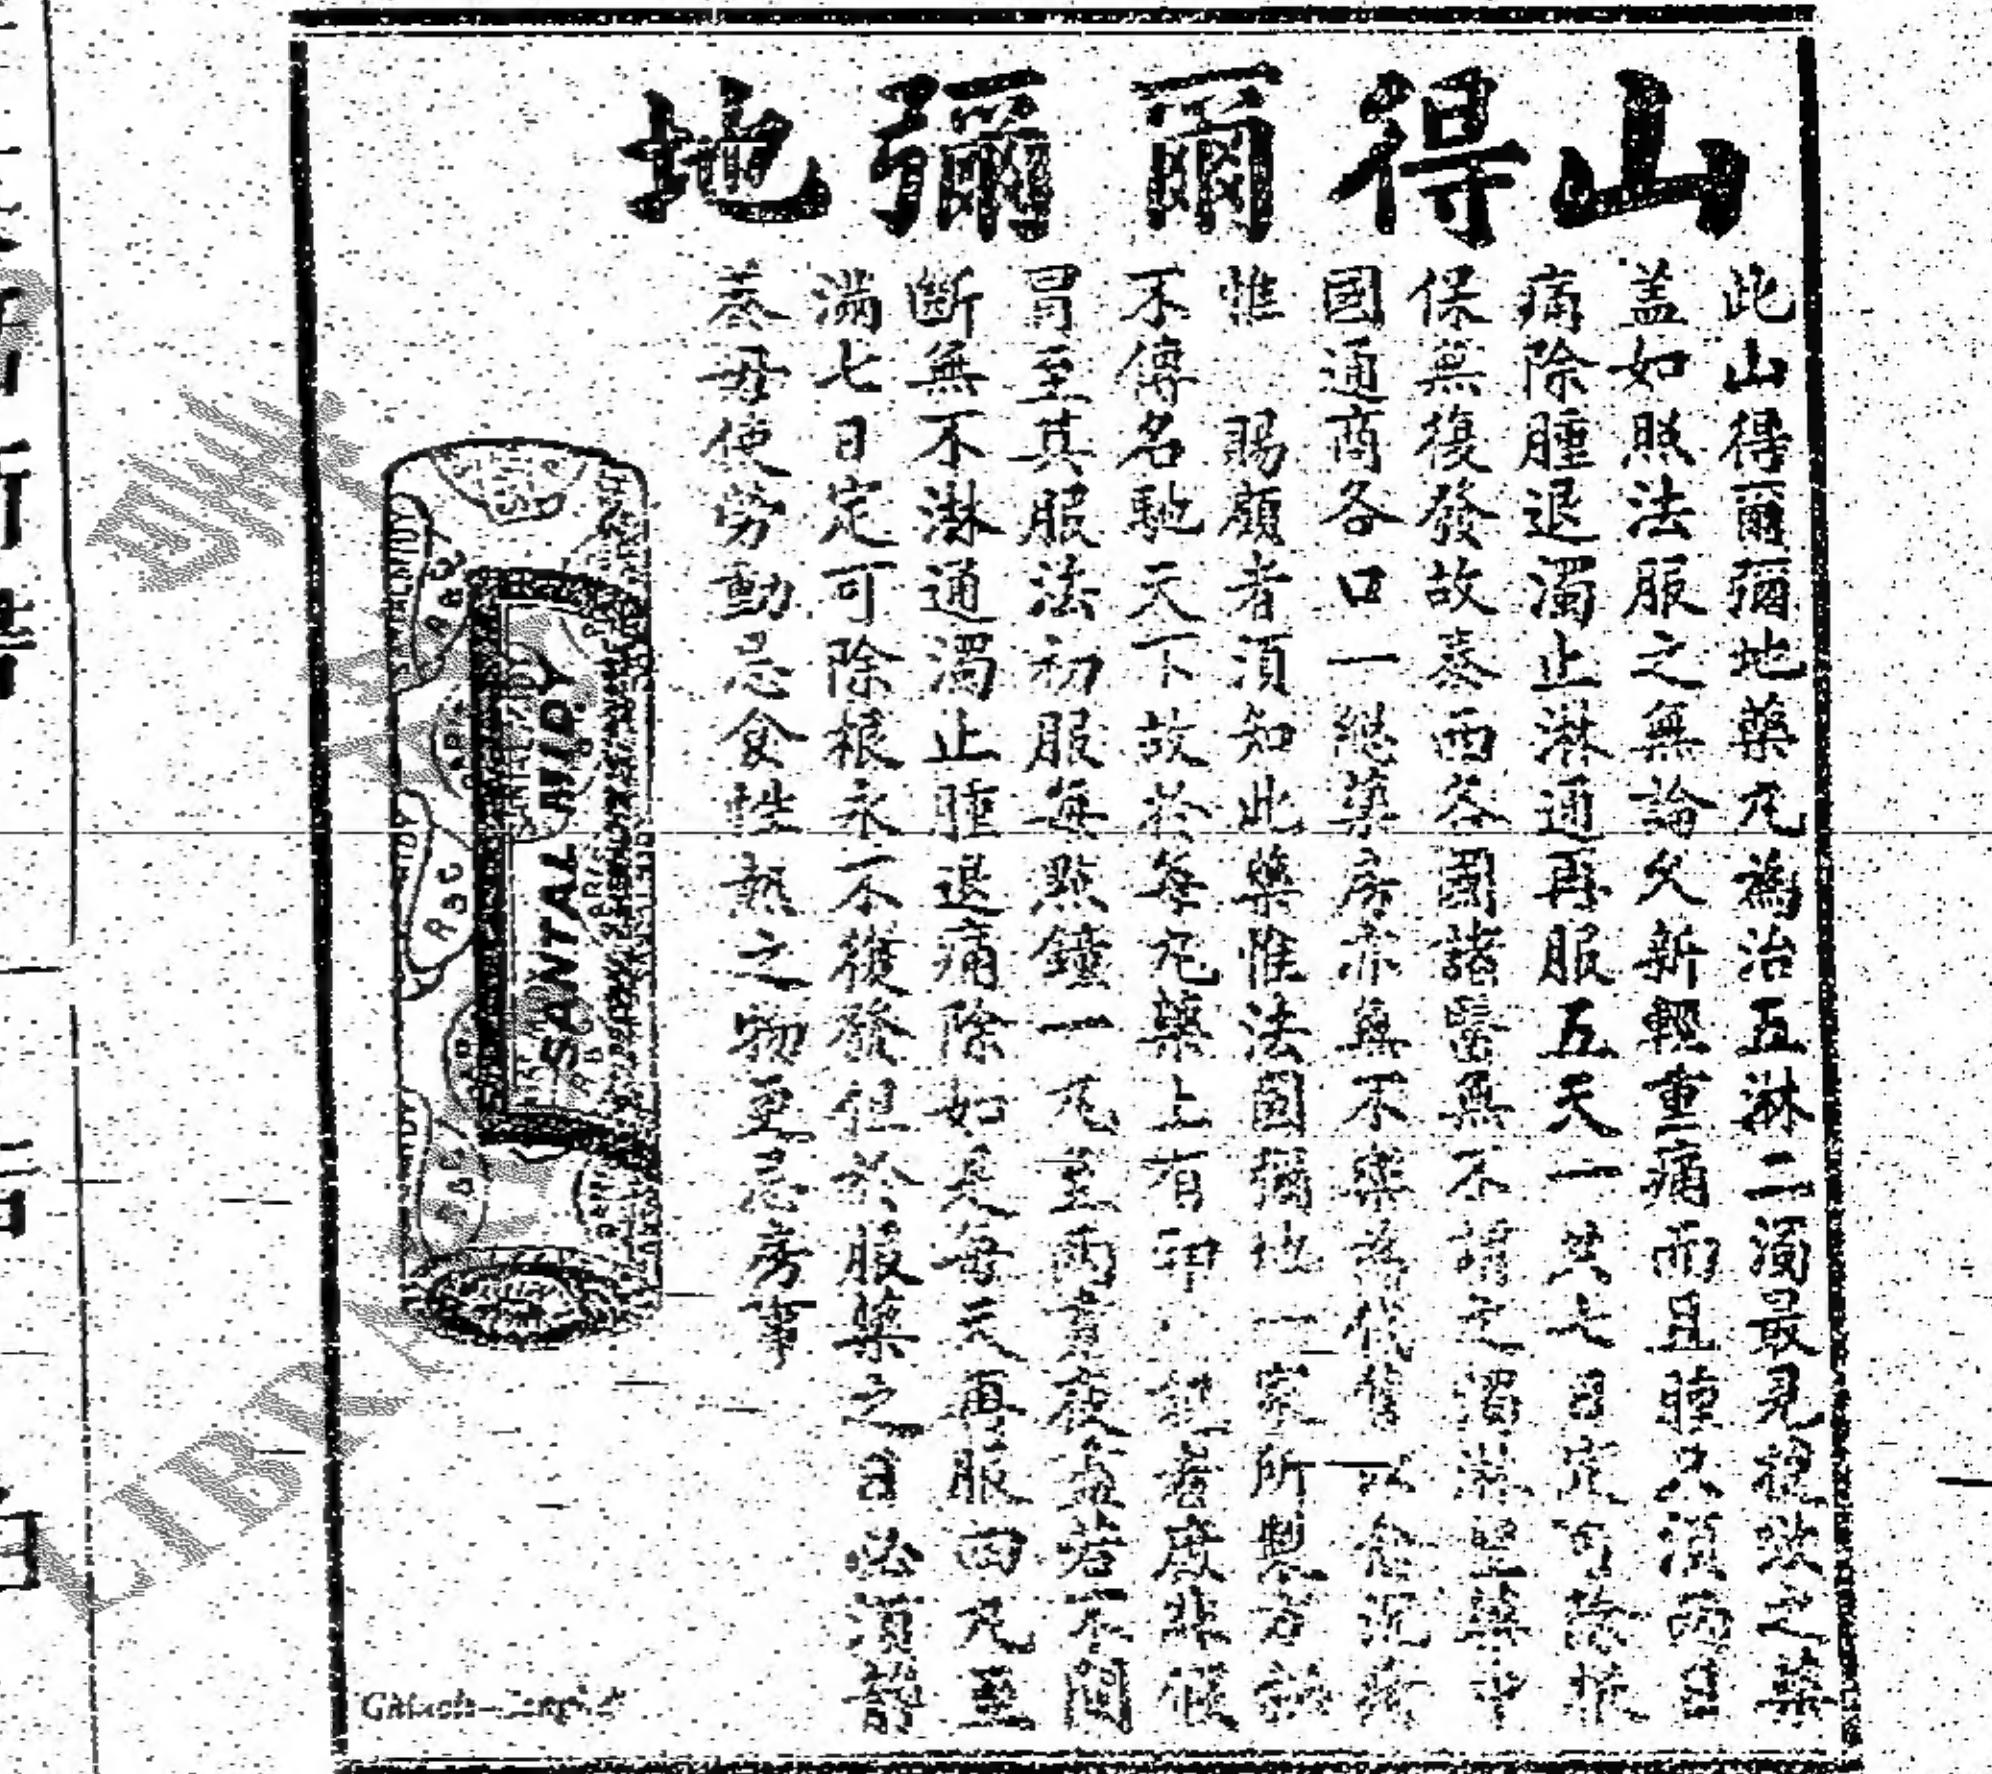 山得爾彌地
此山得爾彌地藥凢為治五淋二濁最見神效之藥
盖如照法服之無論久新輕重痛而且腫只消兩日
痛除腫退濁止淋通再服五天一共七日定可除根
保無復發故泰西各國諸醫無不謂之濁淋聖藥中
國通商各口一總藥房亦無不樂為代售
惟 賜顧者須知此藥惟法國彌地一家所製方
不傳名馳天下故於每凢藥上有印 記者庶無假
冒至其服法初服每點鐘一凢至兩晝夜
斷無不淋通濁止腫退痛除如是每天再服四凢至
滿七日定可除根永不復發但於服藥之日必須静
养毋使勞動忌食性熱之物更忌房事
SANTAL MIDY
PARIS